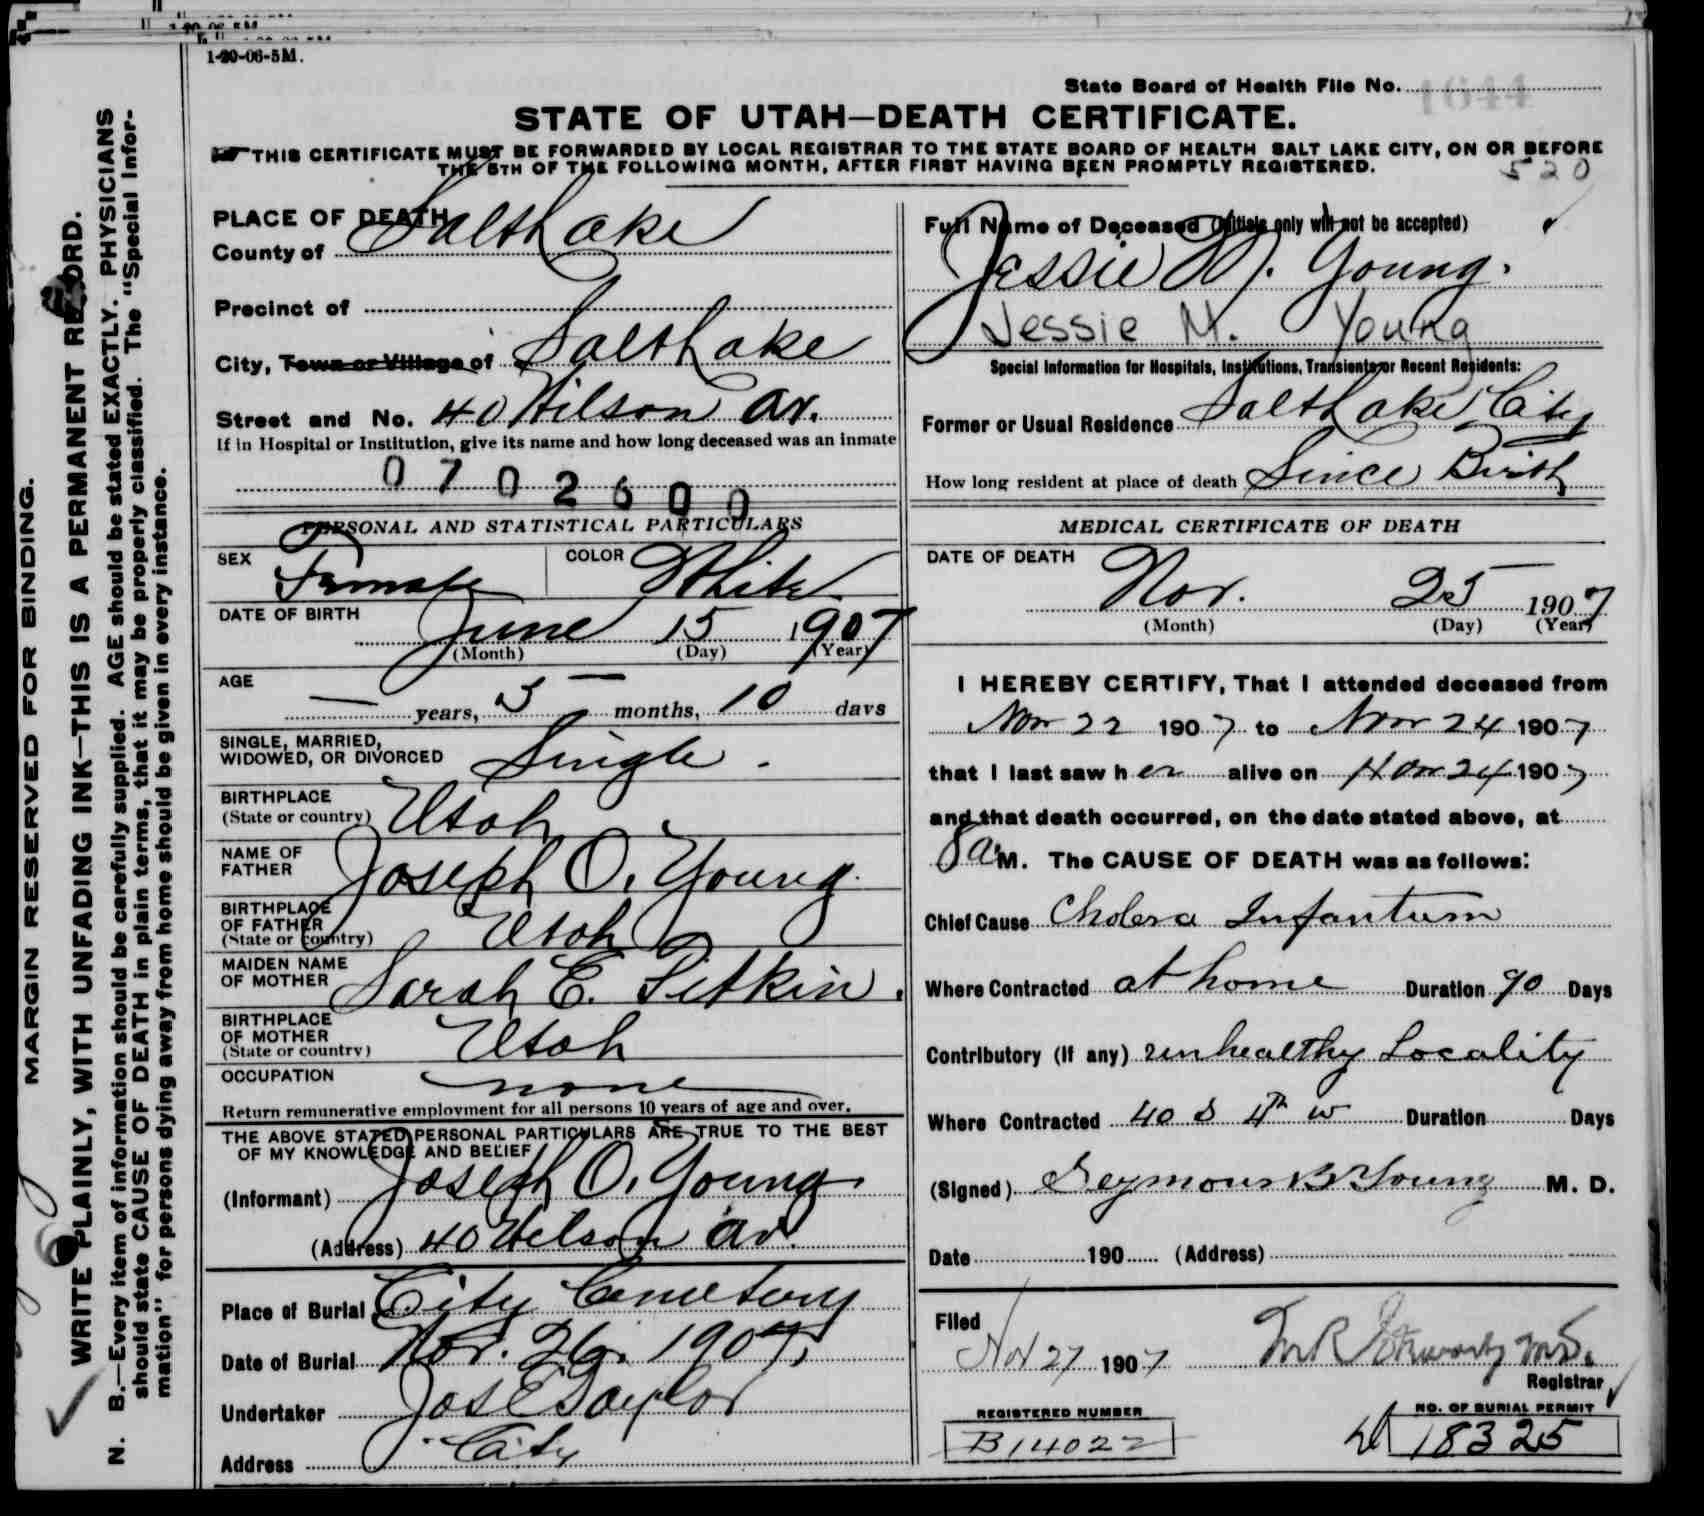 1-20-06-5M.
State Board of Health File No. 1644
STATE OF UTAH—DEATH CERTIFICATE.
THIS CERTIFICATE MUST BE FORWARDED BY LOCAL REGISTRAR TO THE STATE BOARD OF HEALTH SALT LAKE CITY, ON OR BEFORE
THE 5TH OF THE FOLLOWING MONTH, AFTER FIRST HAVING BEEN PROMPTLY REGISTERED.
520
MARGIN RESERVED FOR BINDING.
WRITE PLAINLY, WITH UNFADING INK—THIS IS A PERMANENT RECORD.
N. B.—Every item of information should be carefully supplied. AGE should be stated EXACTLY. PHYSICIANS
should state CAUSE OF DEATH in plain terms, that it may be properly classified. The "Special Infor-
mation" for persons dying away from home should be given in every instance.
PLACE OF DEATH
County of Salt Lake
Precinct of
City, Town or Village of Salt Lake
Street and No. 40 Wilson Av.
If in Hospital or Institution, give its name and how long deceased was an inmate
0702600
PERSONAL AND STATISTICAL PARTICULARS
SEX Female COLOR White
DATE OF BIRTH
June 15 1907
(Month) (Day) (Year)
AGE
— years, 5 months, 10 days
SINGLE, MARRIED,
WIDOWED, OR DIVORCED Single.
BIRTHPLACE
(State or country) Utah
NAME OF
FATHER Joseph O. Young.
BIRTHPLACE
OF FATHER
(State or country) Utah
MAIDEN NAME
OF MOTHER Sarah E. Pitkin.
BIRTHPLACE
OF MOTHER
(State or country) Utah
OCCUPATION none
Return remunerative employment for all persons 10 years of age and over.
THE ABOVE STATED PERSONAL PARTICULARS ARE TRUE TO THE BEST
OF MY KNOWLEDGE AND BELIEF
(Informant) Joseph O. Young.
(Address) 40 Wilson Av.
Place of Burial City Cemetery
Date of Burial Nov. 26, 1907,
Undertaker Jos E Taylor
Address City
Full Name of Deceased (Initials only will not be accepted)
Jessie M. Young.
Jessie M. Young
Special Information for Hospitals, Institutions, Transients or Recent Residents:
Former or Usual Residence Salt Lake City
How long resident at place of death Since Birth
MEDICAL CERTIFICATE OF DEATH
DATE OF DEATH
Nov. 25 1907
(Month) (Day) (Year)
I HEREBY CERTIFY, That I attended deceased from
Nov 22 1907 to Nov 24 1907
that I last saw her alive on Nov 24 1907
and that death occurred, on the date stated above, at
8 a. M. The CAUSE OF DEATH was as follows:
Chief Cause Cholera Infantum
Where Contracted at home Duration 90 Days
Contributory (if any) unhealthy Locality
Where Contracted 40 S 4th W Duration Days
(Signed) Seymour B Young M. D.
Date 190 (Address)
Filed
Nov 27 1907
Registrar
REGISTERED NUMBER
B14022
NO. OF BURIAL PERMIT
18325